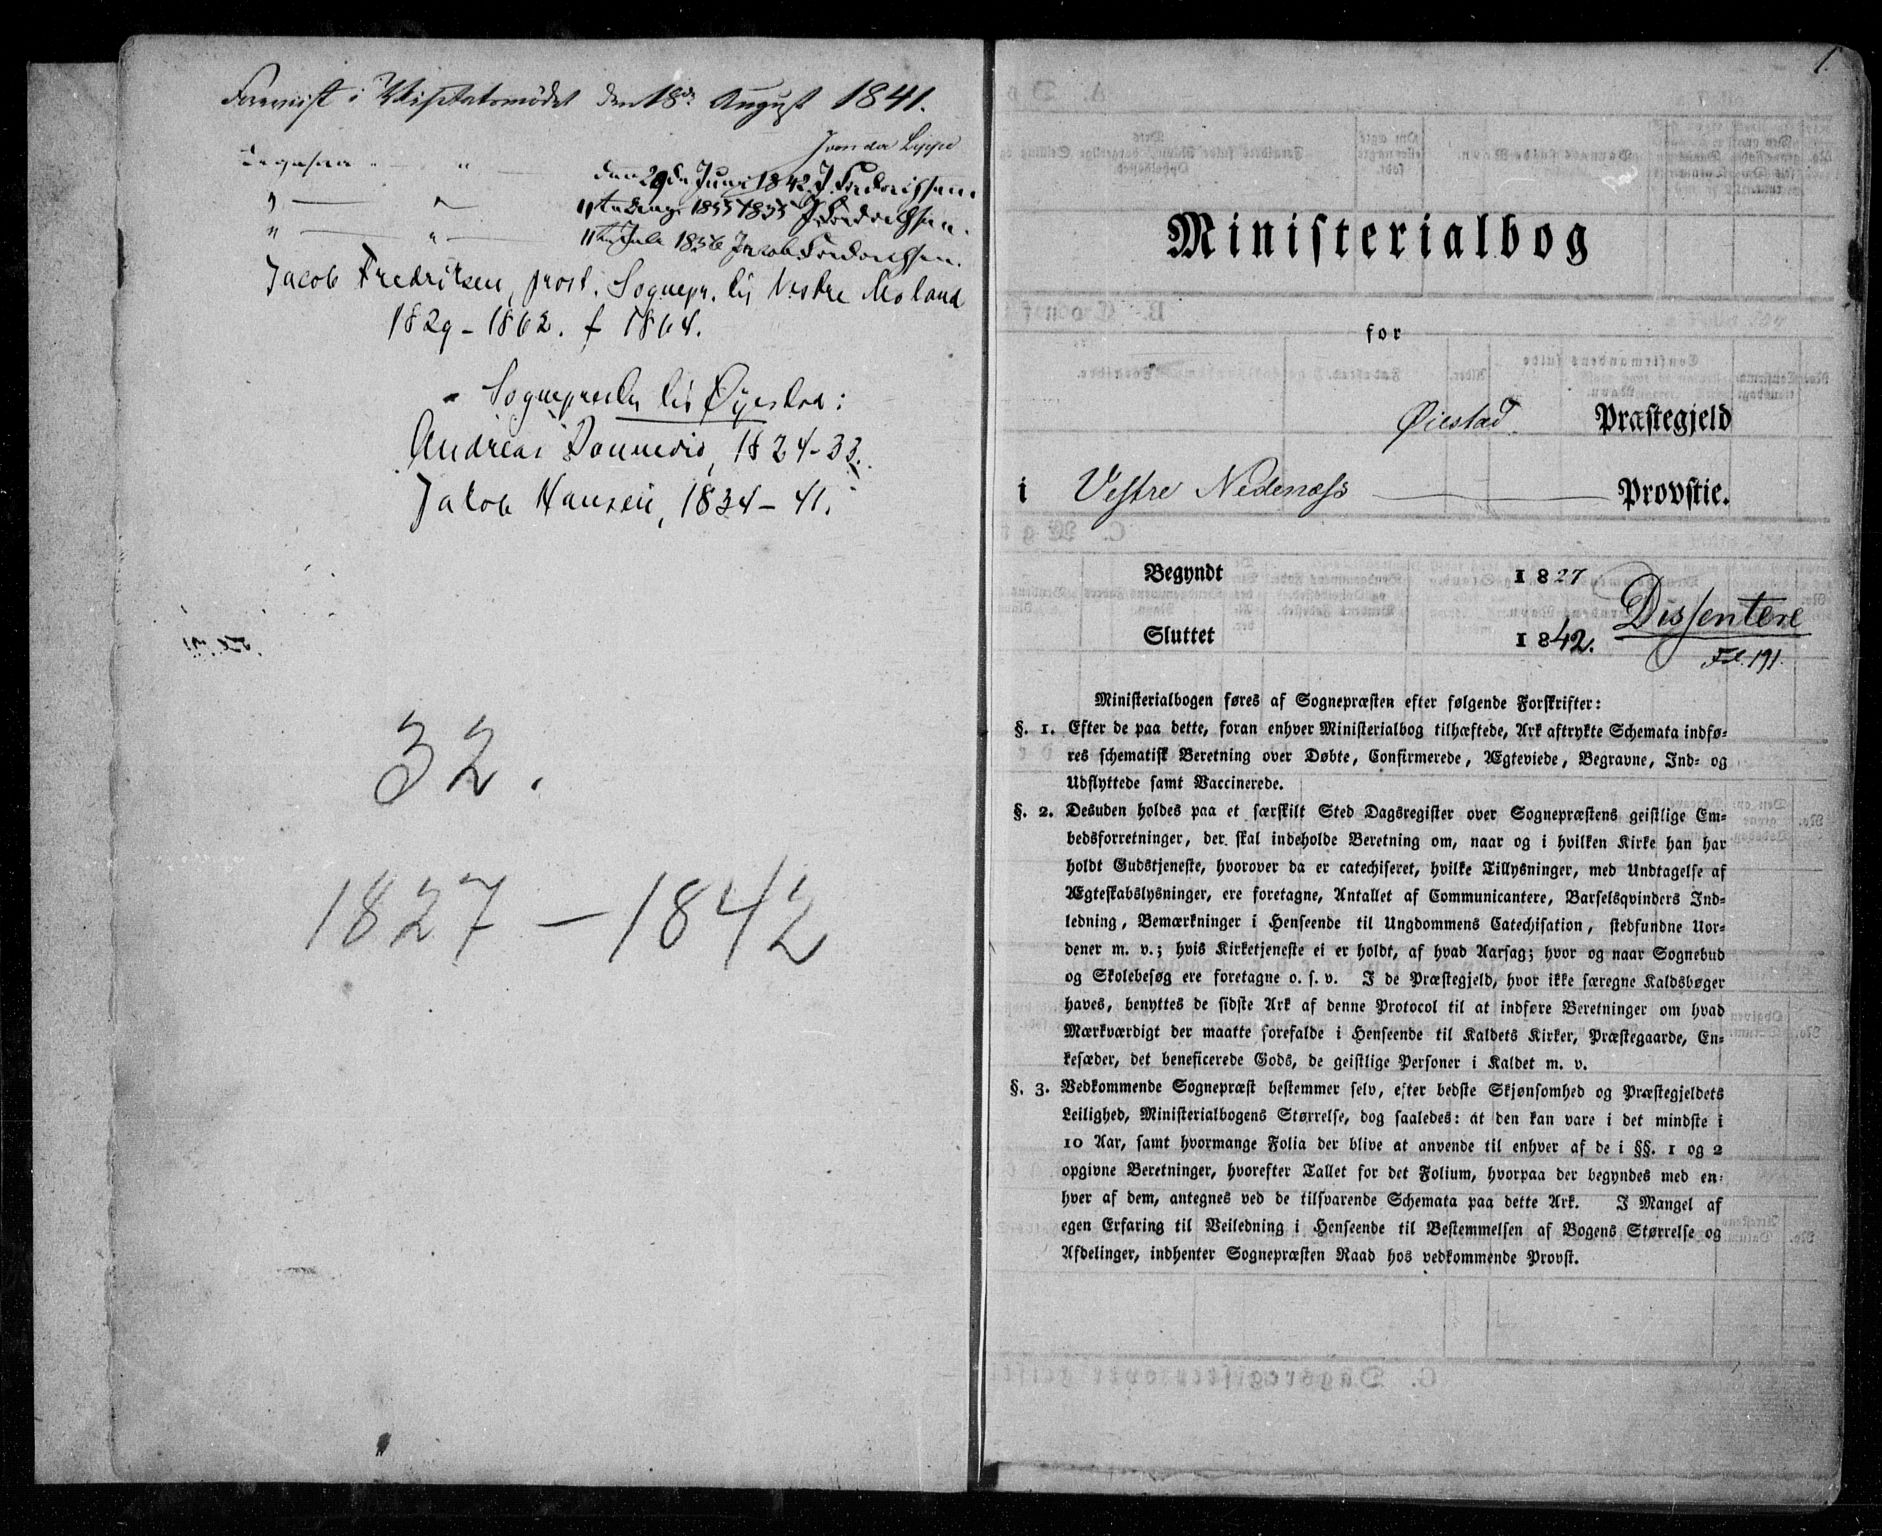 Foreviist i Visitatsmødet den 18de August 1841.
J von der Lippe
Ligesaa " — " — den 29de Juni 1842. J. Frederichsen.
" — " — 11te 1835 J Frederichsen.
" — " — 11te Juli 1836 Jacob Frederichsen.
Jacob Fredriksen, prost. Sognepr. til Vestre Moland
1829 - 1862. † 1864.
Sogneprester til Øyestad:
Andreas Dannevig, 1824-33.
Jakob Hansen, 1834 - 41.
32.
1827 - 1842
1.
Ministerialbog
for
Øiestad Præstegjeld
i Vestre Nedenæss Provstie.
Begyndt 1827
Sluttet 1842.
Dissentere
Fol. 191.
Ministerialbogen føres af Sognepræsten efter følgende Forskrifter:
§. 1. Efter de paa dette, foran enhver Ministerialbog tilhæftede, Ark aftrykte Schemata indfø-
res schematisk Beretning over Døbte, Confirmerede, Ægteviede, Begravne, Ind- og
Udflyttede samt Vaccinerede.
§. 2. Desuden holdes paa et særskilt Sted Dagsregister over Sognepræstens geistlige Em-
bedsforretninger, der skal indeholde Beretning om, naar og i hvilken Kirke han har
holdt Gudstjeneste, hvorover da er catechiseret, hvilke Tillysninger, med Undtagelse af
Ægteskabslysninger, ere foretagne, Antallet af Communicantere, Barselsqvinders Ind-
ledning, Bemærkninger i Henseende til Ungdommens Catechisation, stedfundne Uor-
dener m. v.; hvis Kirketjeneste ei er holdt, af hvad Aarsag; hvor og naar Sognebud
og Skolebesøg ere foretagne o. s. v. I de Præstegjeld, hvor ikke særegne Kaldsbøger
haves, benyttes de sidste Ark af denne Protocol til at indføre Beretninger om hvad
Mærkværdigt der maatte forefalde i Henseende til Kaldets Kirker, Præstegaarde, En-
kesæder, det beneficerede Gods, de geistlige Personer i Kaldet m. v.
§. 3. Vedkommende Sognepræst bestemmer selv, efter bedste Skjønsomhed og Præstegjeldets
Leilighed, Ministerialbogens Størrelse, dog saaledes: at den kan vare i det mindste i
10 Aar, samt hvormange Folia der blive at anvende til enhver af de i §§. 1 og 2
opgivne Beretninger, hvorefter Tallet for det Folium, hvorpaa der begyndes med en-
hver af dem, antegnes ved de tilsvarende Schemata paa dette Ark. I Mangel af
egen Erfaring til Veiledning i Henseende til Bestemmelsen af Bogens Størrelse og
Afdelinger, indhenter Sognepræsten Raad hos vedkommende Provst.